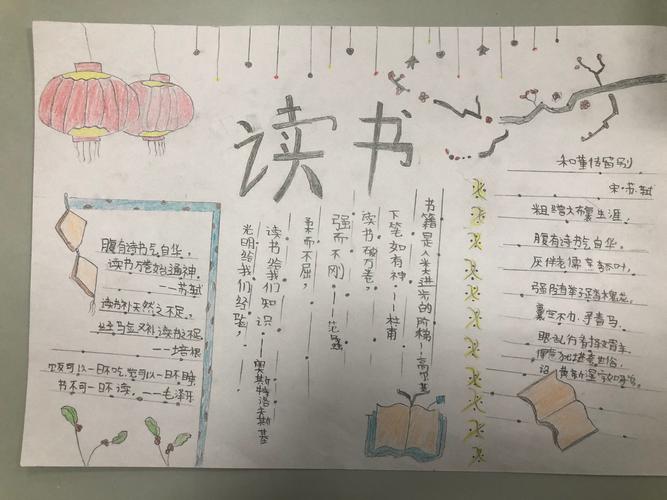 读书
腹有诗书气自华,
读书万卷始通神.
——苏轼
读书补天然之不足,
经验又补读书之不足
——培根
饭可以一日不吃,觉可以一日不睡
书不可一日不读。——毛泽东
光明给我们经验,
读书给我们知识——奥斯特洛夫斯基
柔而不屈,
强而不刚——
读书破万卷,
下笔如有神——杜甫
书籍是人类进步的阶梯——高尔基
和董传留别
宋·苏轼
粗缯大布裹生涯,
腹有诗书气自华,
厌伴老儒 叶,
强随举子踏槐花,
囊空不办寻春马,
眼乱行看择婿车,
世俗,
诏黄新湿字如